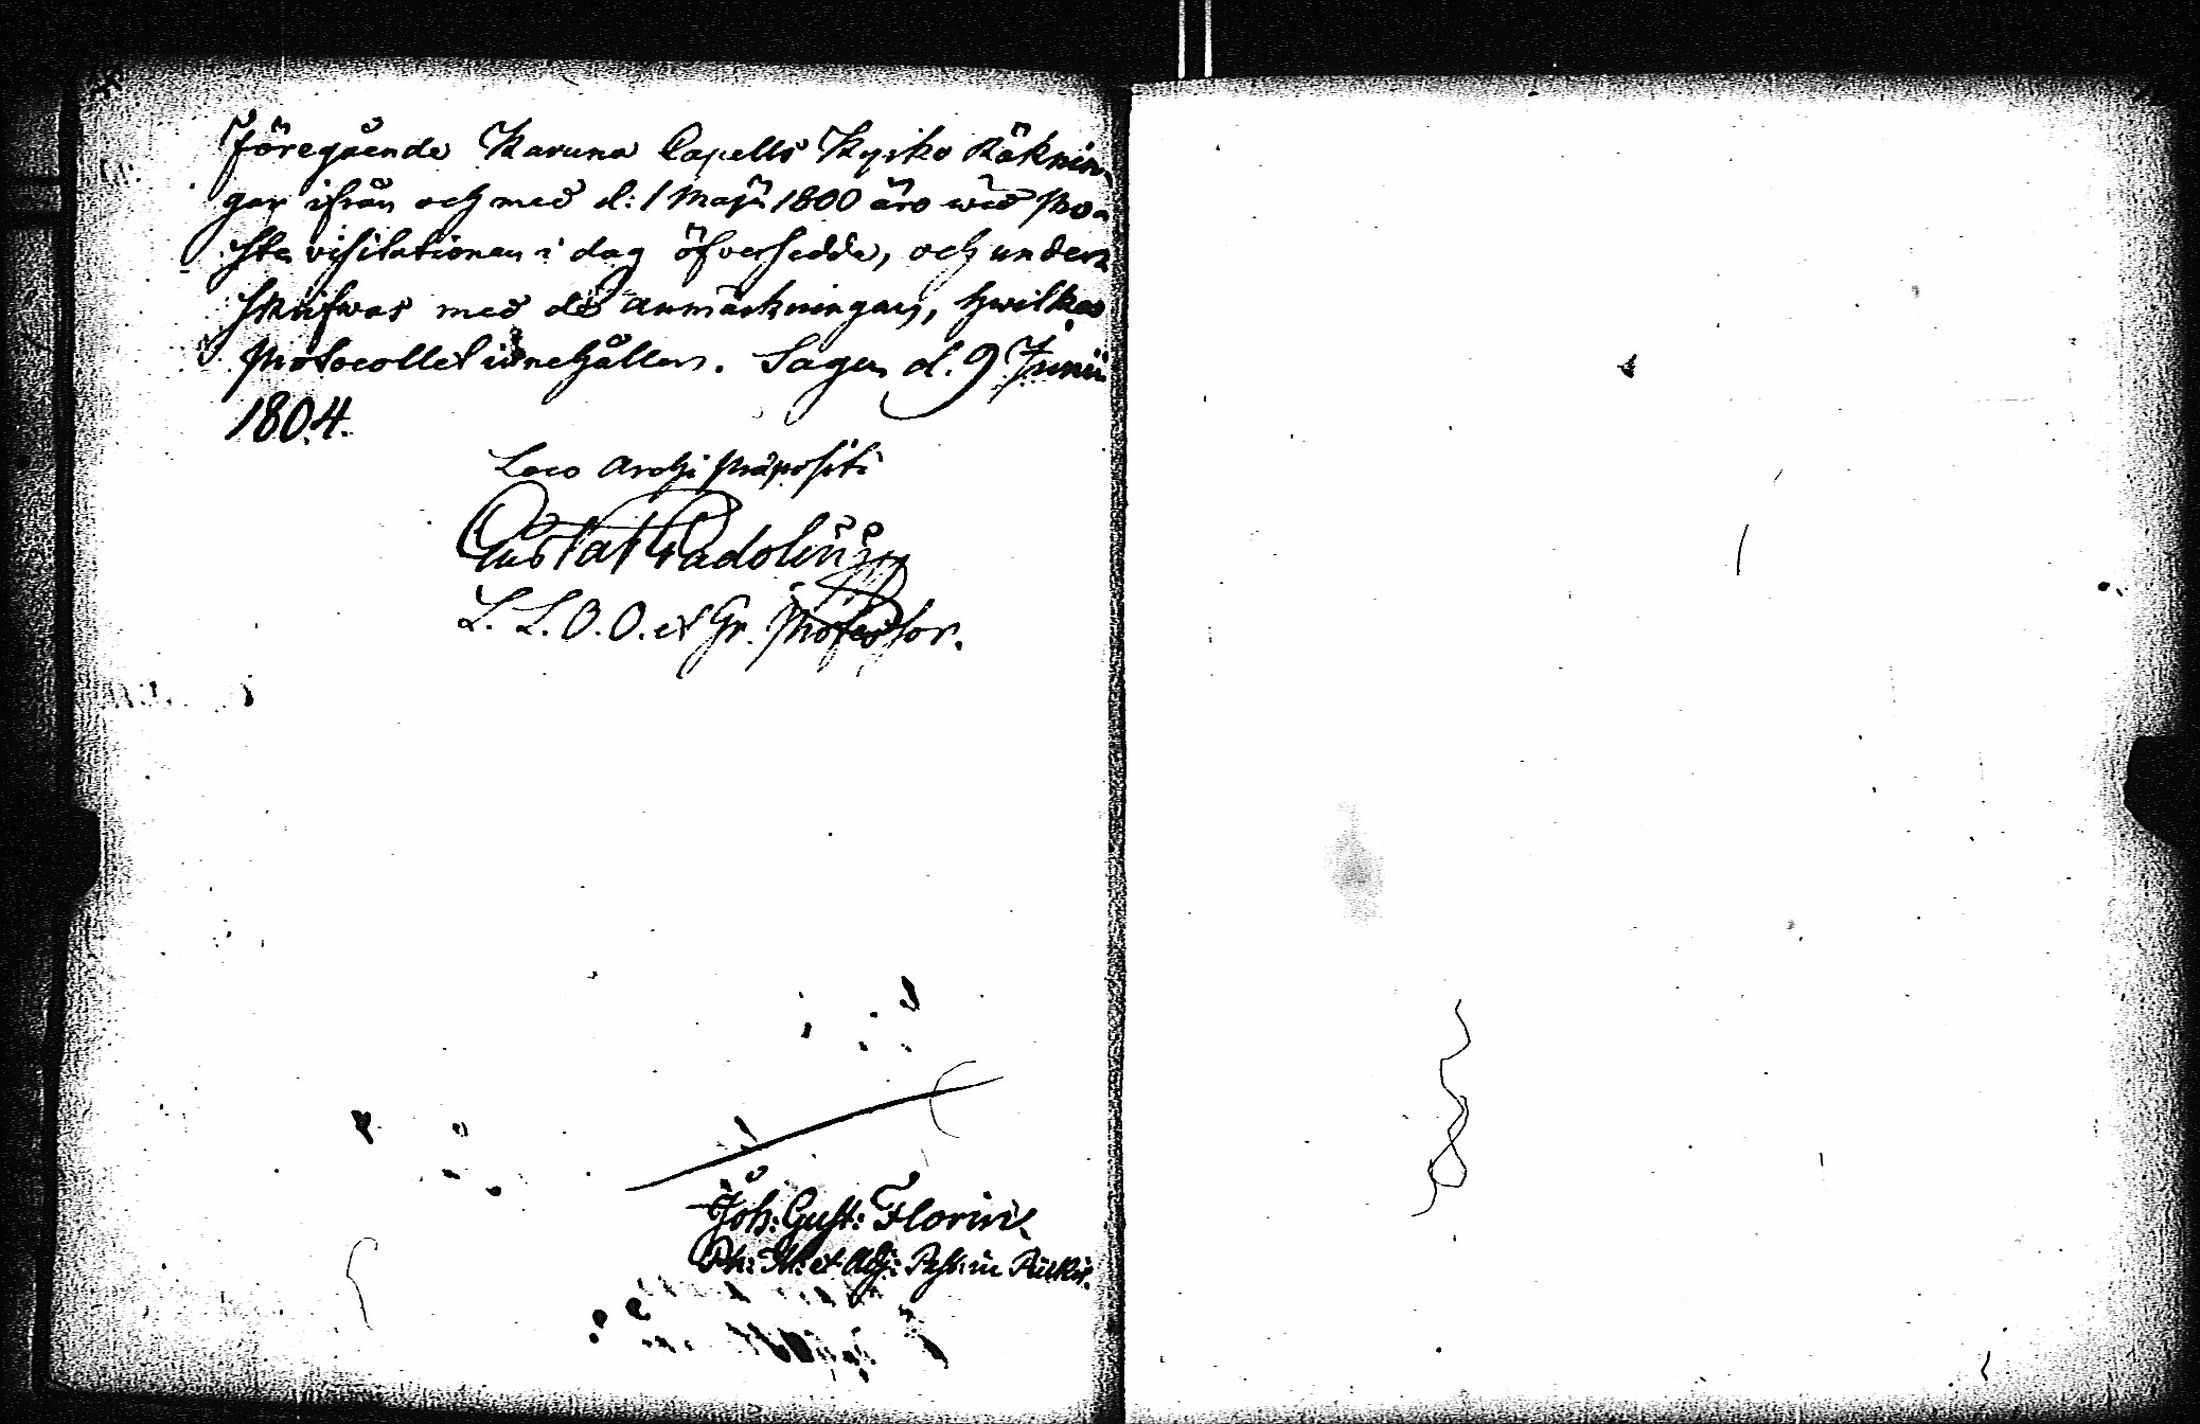 Föregående Karuna Capells Kyrko Räknin-
gar ifrån och med d: 1 Maji 1800 äro wid Pro-
ste visitationen i dag öfversedde, och under-
skrifwas med de anmärkningar, hwilka
Protocollet innehåller. Sagu d. 9 Junii
1804.
Loco Archi Præpositi
Gustaf Gadolin
L. L. O. O. et Gr. Professor.
Joh: Gust: Florin
Ph: M: et Adj: Past: in Pikis.